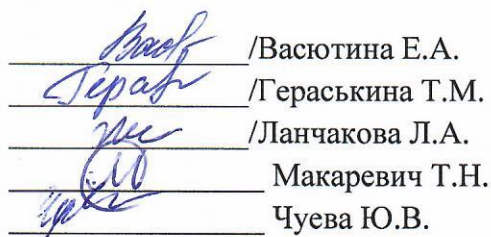 /Васютина Е.А.
/Гераськина Т.М.
/Ланчакова Л.А.
Макаревич Т.Н.
Чуева Ю.В.